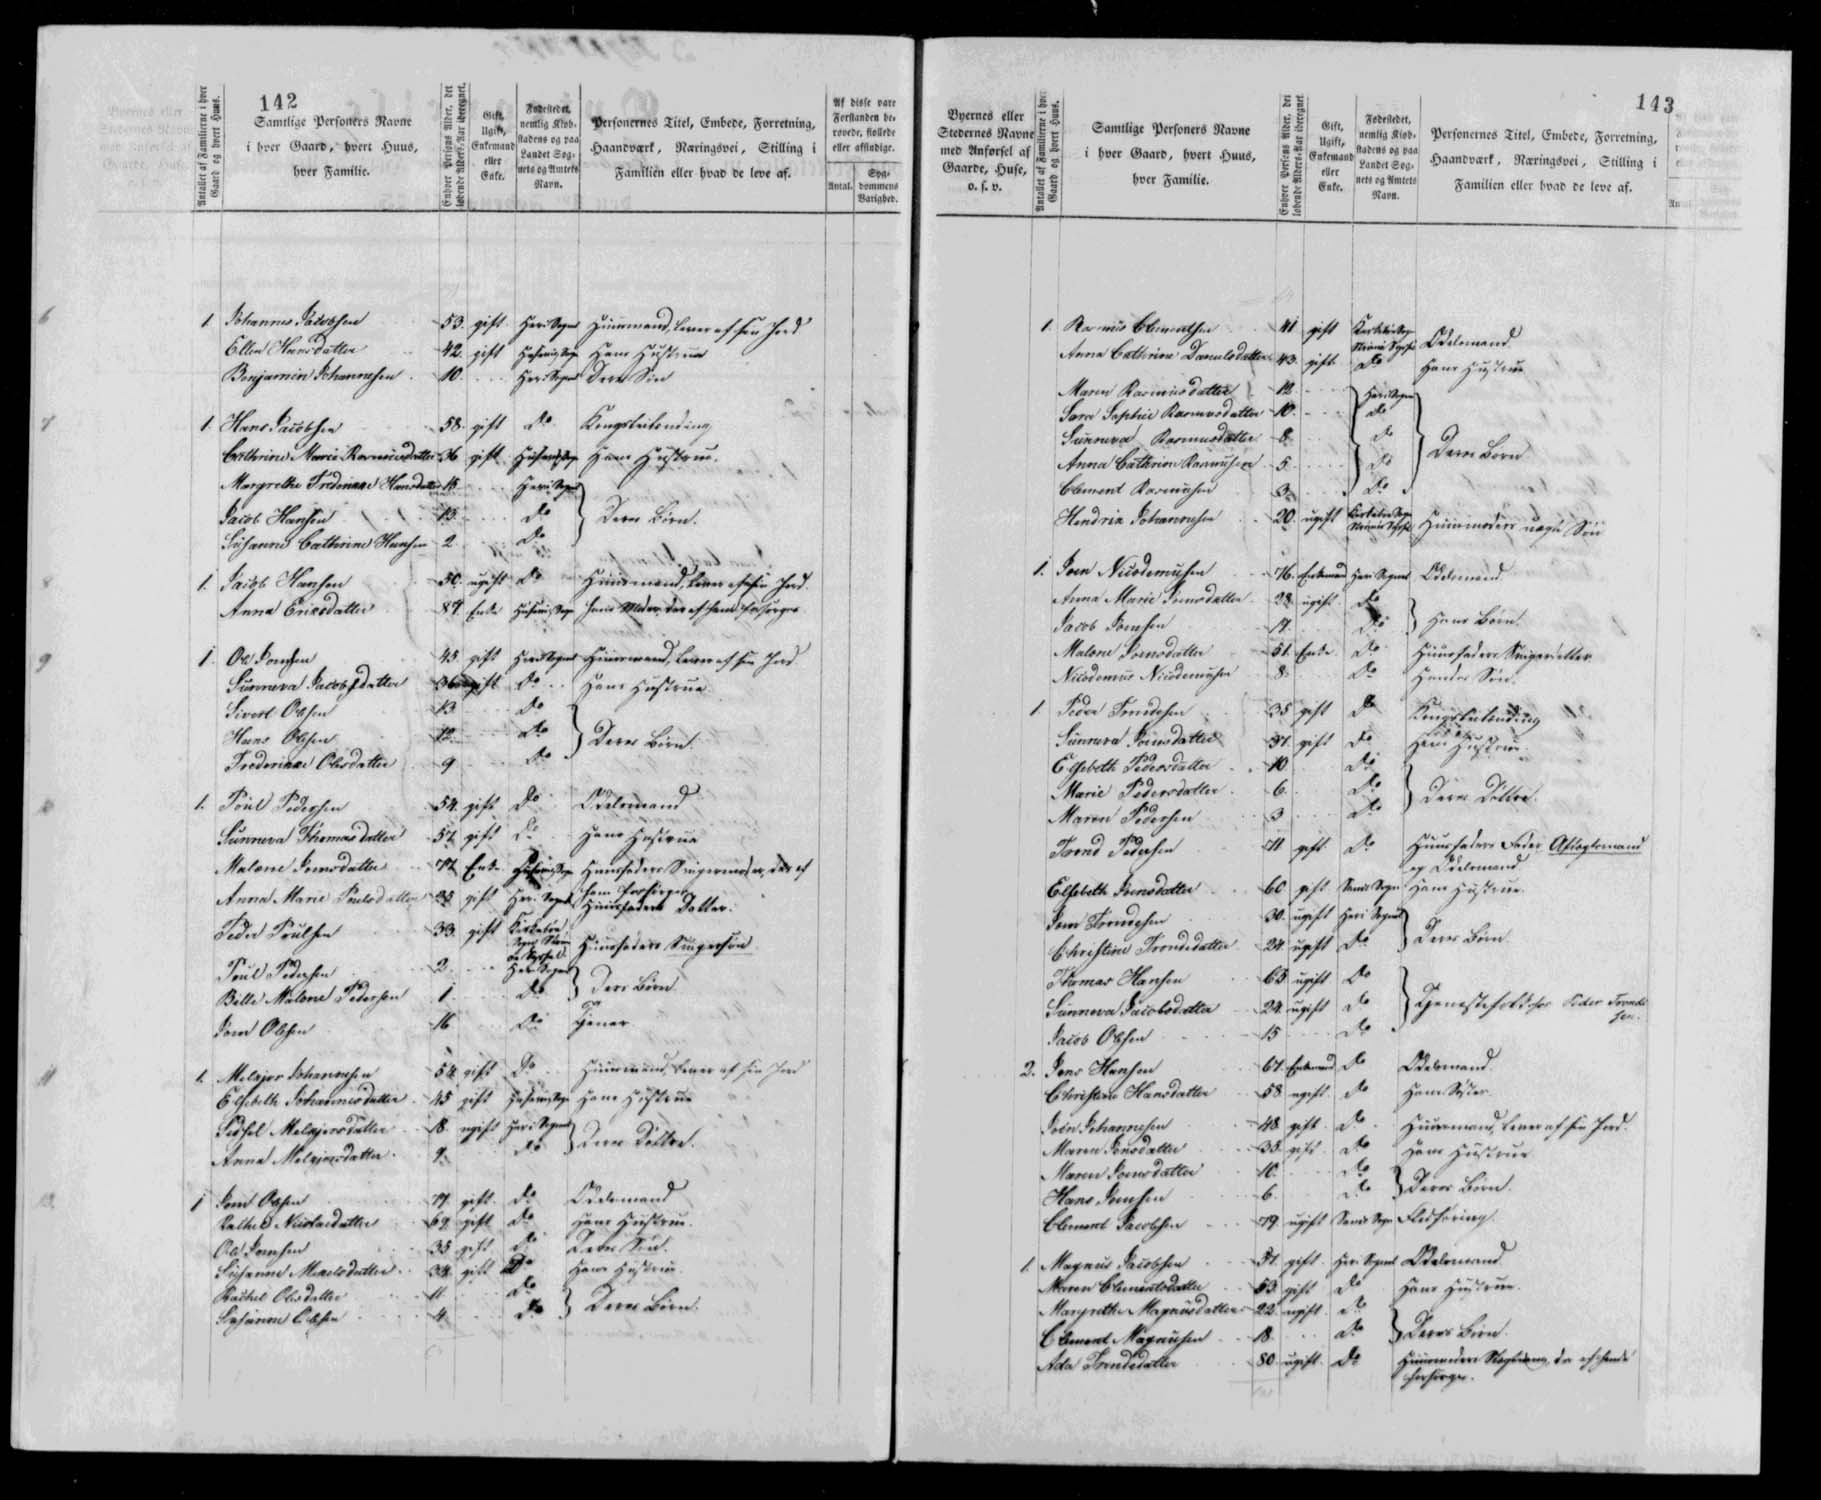 142
Antallet af Familierne i hver Gaard og hvert Huus.
Samtlige Personers Navne i hver Gaard, hvert Huus, hver Familie.
Enhver Persons Alder, det løbende Alders-Aar iberegnet.
Gift, Ugift, Enkemand eller Enke.
Fødestedet, nemlig Kjøbstadens og paa Landet Sognets og Amtets Navn.
Personernes Titel, Embede, Forretning, Haandværk, Næringsvei, Stilling i Familien eller hvad de leve af.
Af disse vare Forstanden berøvede, fjollede eller afsindige.
Antal.
Sygdommens Varighed.
6
1. Johannes Jacobsen 53. gift Heri Sogn Huusmand, lever af sin Jord
Ellen Hansdatter 42. gift Huusevig Sogn Hans Hustrue
Benjamin Johannesen 10. Heri Sogn Deres Søn
7
1. Hans Jacobsen 58. gift Do Kongsbeilending
Cathrine Marie Rasmusdatter 36 gift Hans Hustrue
Margrethe Frederikke Hansdatter 15. Heri Sogn
Jacob Hansen 13. Do Deres Børn.
Susanne Cathrine Hansen 2. Do
1. Jacob Hansen 50. ugift Do Huusmand, lever af sin Jord.
Anna Ericsdatter 84. Enke Hans Moder, der af ham forsørges
9
1. Ole Joensen 45. gift Heri Sogn Huusmand, lever af sin Jord
Sunneva Jacobsdatter 36 gift Do Hans Hustrue
Sivert Olesen 13. Do
Hans Olesen 12. Do Deres Børn.
Frederikke Olesdatter 9 Do
1. Poul Pedersen 54. gift Do Odelsmand
Sunneva Thomasdatter 57. gift Do Hans Hustrue
Malene Joensdatter 77. Enke Huusfaders Svigermoder, der af ham forsørges
Anna Marie Poulsdatter gift Heri Sogn Huusfaders Datter.
Peder Poulsen 33. gift Huusfaders Svigersøn
Poul Pedersen 2. Heri Sogn
Bille Malene Pedersen 1. Do Deres Børn
Joen Olesen 16 Do Tjener
11
1. Melkjer Johannesen 54. gift Do Huusmand, lever af sin Jord
Elsebeth Johannesdatter 45 gift Hans Hustrue
Sidsel Melkjersdatter 18. ugift Heri Sogn Deres Døttre.
Anna Melkjersdatter 9. Do
1 Joen Olesen 77. gift Do Odelsmand
Nicolaidatter 69. gift Do Hans Hustrue
Ole Joensen 35. gift Do Deres Søn.
Susanne Mikkelsdatter 34. gift Do Hans Hustrue
Rachel Olesdatter 11. Do
Susanne Olesen 4. Do Deres Børn.
143
Byernes eller Stedernes Navne med Anførsel af Gaarde, Huse, o. s. v.
Antallet af Familierne i hver Gaard og hvert Huus.
Samtlige Personers Navne i hver Gaard, hvert Huus, hver Familie.
Enhver Persons Alder, det løbende Alders-Aar iberegnet.
Gift, Ugift, Enkemand eller Enke.
Fødestedet, nemlig Kjøbstadens og paa Landet Sognets og Amtets Navn.
Personernes Titel, Embede, Forretning, Haandværk, Næringsvei, Stilling i Familien eller hvad de leve af.
1. Rasmus Clementsen 41 gift Odelsmand
Anna Cathrine Danielsdatter 43. gift Do Hans Hustrue
Maren Rasmusdatter 12. Heri Sogn
Sara Sophie Rasmusdatter 10. Do
Sunneva Rasmusdatter 8. Do
Anna Cathrine Rasmusen 5. Do Deres Børn
Clement Rasmusen 3. Do
Hendrik Johannesen 20. ugift Huusmoders uægte Søn
1. Joen Nicodemusen 76. Enkemand Heri Sogn Odelsmand
Anna Marie Joensdatter 28. ugift Do
Jacob Joensen 17. Do Hans Børn.
Malene Joensdatter 51. Enke Do Huusfaders Svigerdatter
Nicodemus Nicodemusen 8. Do Hendes Søn.
1. Peder Trondesen 35 gift Do Kongsbeilending
Sunneva Joensdatter 37. gift Do Hans Hustrue.
Elsebeth Pedersdatter 10. Do
Marie Pedersdatter 6. Do Deres Døttre.
Maren Pedersen 3 Do
Trond Pedersen 71 gift Do Huusfaders Fader, Aftægtsmand og Odelsmand
Elsebeth Joensdatter 60 gift Sands Sogn Hans Hustrue
Joen Trondesen 30. ugift Heri Sogn
Christine Trondsdatter 24. ugift Do Deres Børn
Thomas Hansen 63 ugift Do
Sunneva Jacobsdatter 24. ugift Do Tjenestefolk hos Peder Trondesen.
Jacob Olesen 15 Do
2. Jens Hansen 67. Enkemand Do Odelsmand
Christine Hansdatter 58. ugift Do Hans Søster
Joen Johannesen 48. gift Do Huusmand, lever af sin Jord.
Maren Joensdatter 35. gift Do Hans Hustrue
Maren Joensdatter 10. Do
Hans Joensen 6. Do Deres Børn.
Clement Jacobsen 79 ugift Sands Sogn Fledføring
1. Magnus Jacobsen 57. gift Heri Sogn Odelsmand
Maren Clementsdatter 53. gift Do Hans Hustrue.
Margrethe Magnusdatter 22. ugift Do
Clement Magnusen 18. Do Deres Børn.
Ada Trondsdatter 80. ugift Do der af hende forsørges.